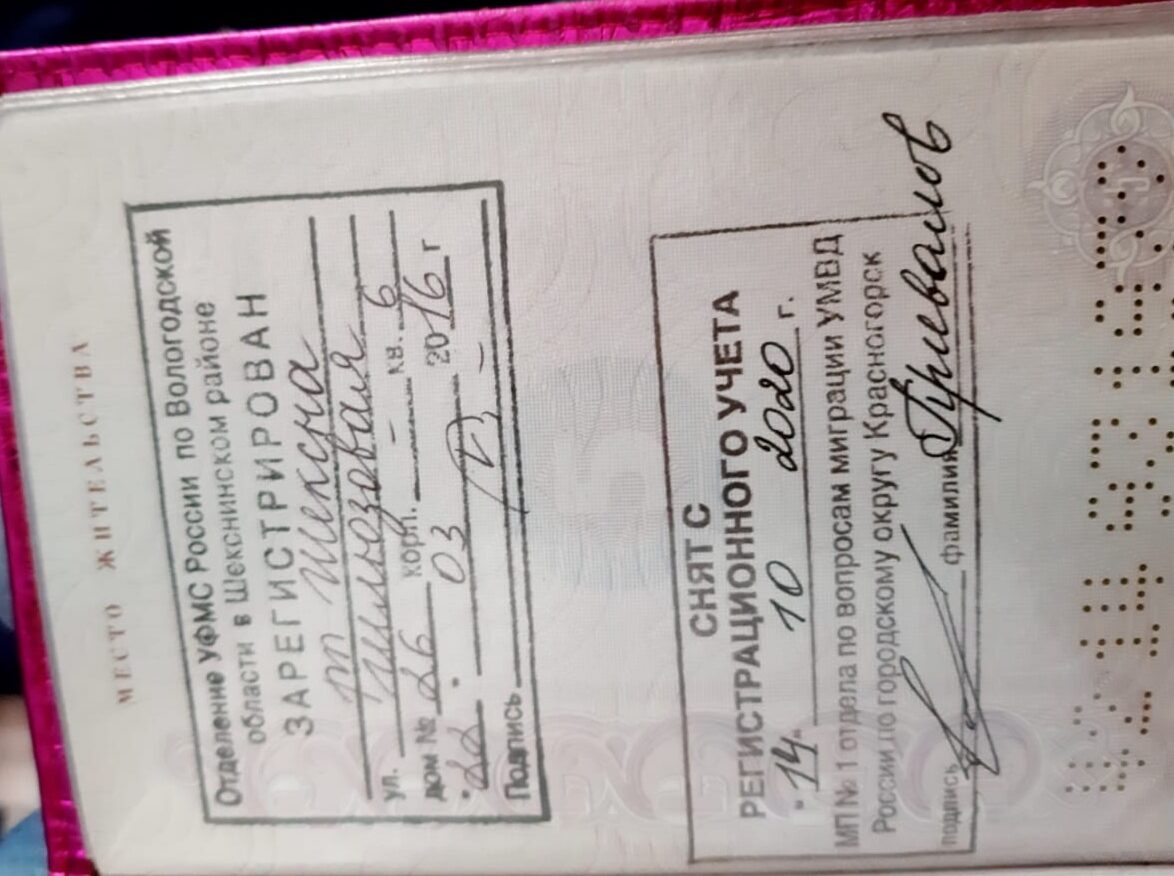 МЕСТО ЖИТЕЛЬСТВА
Отделение УФМС России по Вологодской
области в Шекснинском районе
ЗАРЕГИСТРИРОВАН
п Шексна
ул. Шлюзовая
дом № 26 корп. – кв. 6
"22" 03 2016 г
Подпись
СНЯТ С
РЕГИСТРАЦИОННОГО УЧЕТА
"14" 10 2020 г.
МП № 1 отдела по вопросам миграции УМВД
России по городскому округу Красногорск
подпись фамилия